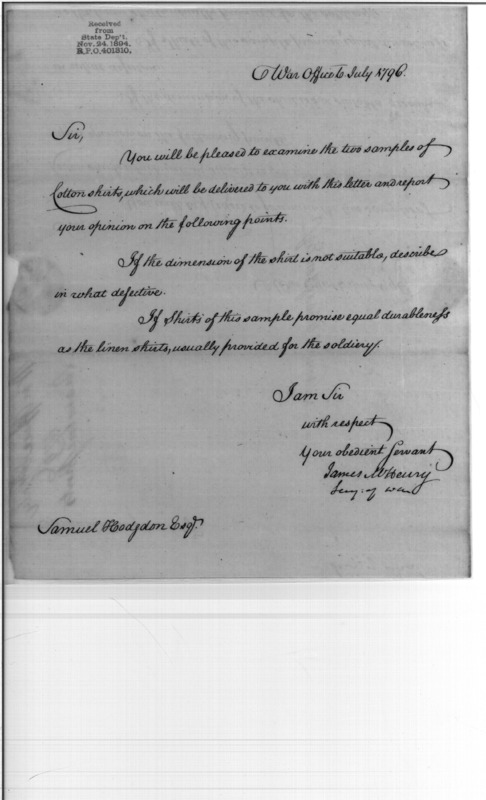 Received
from
State Dep't.
Nov. 24, 1894.
R.P.O. 401310.
War Office 10 July 1796.
Sir,
You will be pleased to examine the two samples of
Cotton shirts, which will be delivered to you with this letter and report
your opinion on the following points.
If the dimension of the shirt is not suitable, describe
in what defective.
If Shirts of this sample promise equal durableness
as the linen shirts, usually provided for the soldiery.
I am Sir
with respect
Your obedient Servant
James McHenry
Secy. of War
Samuel Hodgdon Esqr.